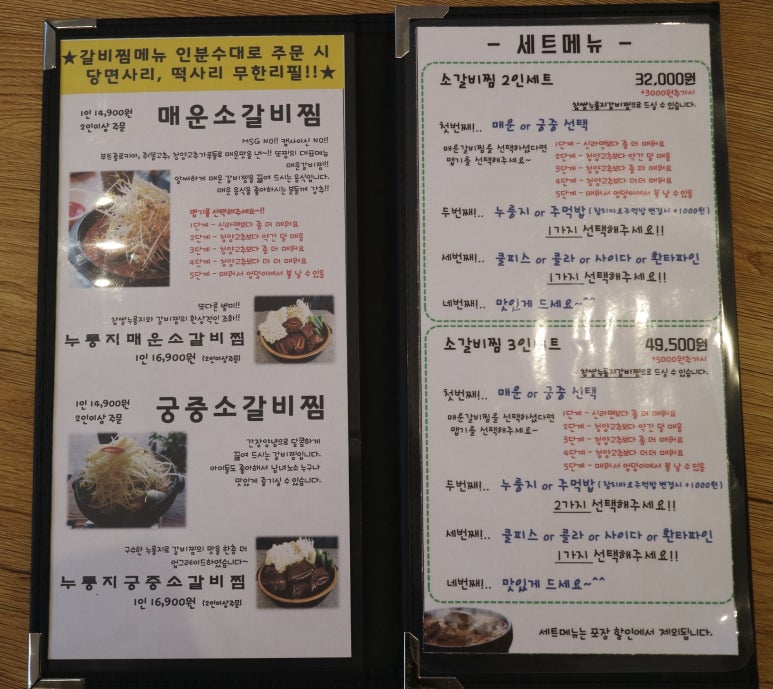 ★갈비찜메뉴 인분수대로 주문 시
당면사리, 떡사리 무한리필!!★
1인 14,900원
2인이상 주문
매운소갈비찜
MSG NO!! 캡사이신 NO!!
부트졸로키아, 쥐똥고추, 청양고추가루들로 매운맛을 낸~!! 또찜의 대표메뉴
매운갈비찜!!
알싸하게 매운 갈비찜을 끓여 드시는 음식입니다.
매운 음식을 좋아하시는 분들께 강추!!
맵기를 선택해주세요~!!
1단계 - 신라면보다 좀 더 매워요
2단계 - 청양고추보다 약간 덜 매움
3단계 - 청양고추보다 좀 더 매워요
4단계 - 청양고추보다 더 더 매워요
5단계 - 매워서 엉덩이에서 불 날 수 있음
또다른 별미!!
찹쌀누룽지와 갈비찜의 환상적인 조화!!
누룽지매운소갈비찜
1인 16,900원 (2인이상주문)
1인 14,900원
2인이상 주문
궁중소갈비찜
간장양념으로 달콤하게
끓여 드시는 갈비찜입니다.
아이들도 좋아해서 남녀노소 누구나
맛있게 즐기실 수 있습니다.
구수한 누룽지로 갈비찜의 맛을 한층 더
업그레이드하였습니다~
누룽지궁중소갈비찜
1인 16,900원 (2인이상주문)
- 세트메뉴 -
소갈비찜 2인세트 32,000원
+3000원추가시
찹쌀누룽지갈비찜으로 드실 수 있습니다.
첫번째!.. 매운 or 궁중 선택
매운갈비찜을 선택하셨다면
맵기를 선택해주세요~
1단계 - 신라면보다 좀 더 매워요
2단계 - 청양고추보다 약간 덜 매움
3단계 - 청양고추보다 좀 더 매워요
4단계 - 청양고추보다 더 더 매워요
5단계 - 매워서 엉덩이에서 불 날 수 있음
두번째!.. 누룽지 or 주먹밥 (참치마요주먹밥 변경시 +1000원)
1가지 선택해주세요!!
세번째!.. 쿨피스 or 콜라 or 사이다 or 환타파인
1가지 선택해주세요!!
네번째!.. 맛있게 드세요~^^
소갈비찜 3인세트 49,500원
+5000원추가시
찹쌀누룽지갈비찜으로 드실 수 있습니다.
첫번째!.. 매운 or 궁중 선택
매운갈비찜을 선택하셨다면
맵기를 선택해주세요~
1단계 - 신라면보다 좀 더 매워요
2단계 - 청양고추보다 약간 덜 매움
3단계 - 청양고추보다 좀 더 매워요
4단계 - 청양고추보다 더 더 매워요
5단계 - 매워서 엉덩이에서 불 날 수 있음
두번째!.. 누룽지 or 주먹밥 (참치마요주먹밥 변경시 +1000원)
2가지 선택해주세요!!
세번째!.. 쿨피스 or 콜라 or 사이다 or 환타파인
1가지 선택해주세요!!
네번째!.. 맛있게 드세요~^^
세트메뉴는 포장 할인에서 제외됩니다.